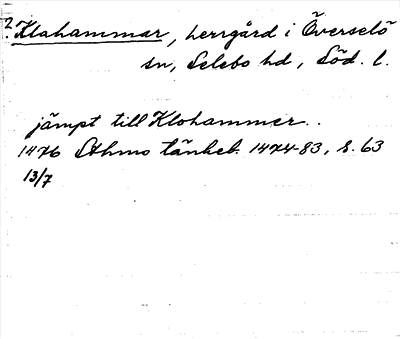 2. Klahammar, herrgård i Överselö
sn, Selebo hd, Söd. l.
jämpt till Klohammer..
1476 Sthms tänkeb. 1474-83, s. 63
13/7